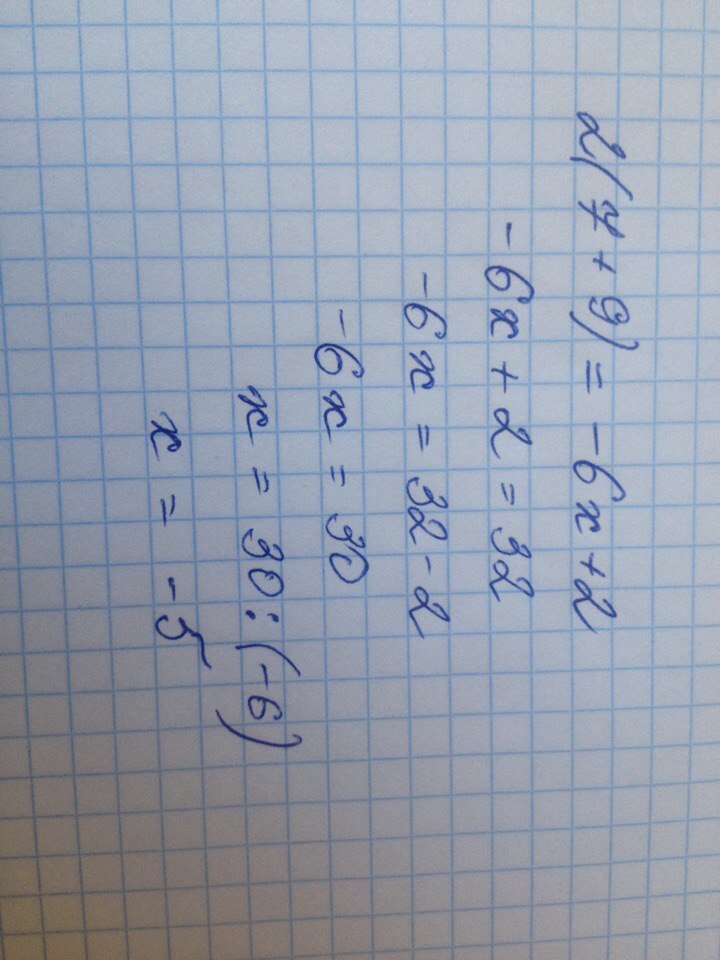 2(7+9)=-6x+2
-6x+2=32
-6x=32-2
-6x=30
x=30:(-6)
x=-5